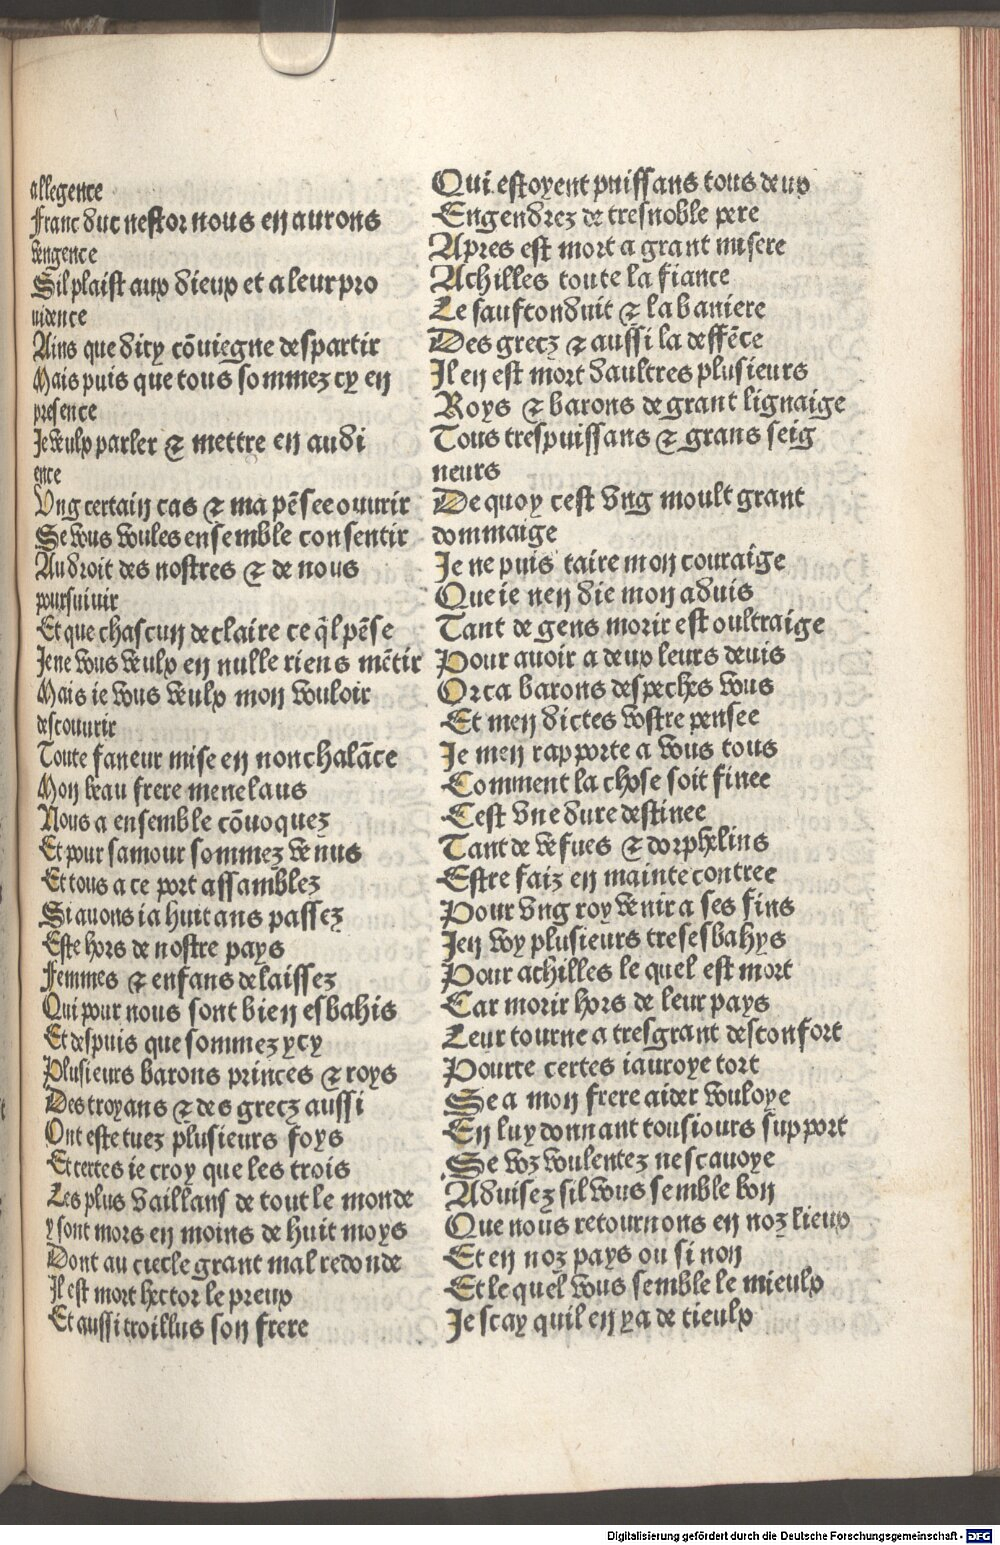 allegence
Franc duc nestor nous en aurons
vengence
Sil plaist aux dieux et a leur pro
uidence
Ains que dicy cōuiegne despartir
Mais puis que tous sommez cy en
presence
Je veulx parler ⁊ mettre en audi
ence
Vng certain cas ⁊ ma pēsee ouurir
Se vous voules ensemble consentir
Au droit des nostres ⁊ de nous
poursuiuir
Et que chascun declaire ce q̄l pēse
Je ne vous veulx en nulle riens mētir
Mais ie vous veulx mon vouloir
descouurir
Toute faueur mise en nonchalāce
Mon beau frere menelaus
Nous a ensemble cōuoquez
Et pour samour sommez venus
Et tous a ce port assamblez
Si auons ia huit ans passez
Este hors de nostre pays
Femmes ⁊ enfans delaissez
Qui pour nous sont bien esbahis
Et despuis que sommez ycy
Plusieurs barons princes ⁊ roys
Des troyans ⁊ des grecz aussi
Ont este tuez plusieurs foys
Et certes ie croy que les trois
Les plus vaillans de tout le monde
y sont mors en moins de huit moys
Dont au ciecle grant mal redonde
Il est mort hector le preux
Et aussi troillus son frere
Qui estoyent puissans tous deux
Engendrez de tresnoble pere
Apres est mort a grant misere
Achilles toute la fiance
Le saufconduit ⁊ la baniere
Des grecz ⁊ aussi la deffēce
Il en est mort daultres plusieurs
Roys ⁊ barons de grant lignaige
Tous trespuissans ⁊ grans seig
neurs
De quoy cest vng moult grant
dommaige
Je ne puis taire mon couraige
Que ie nen die mon aduis
Tant de gens morir est oultraige
Pour auoir a deux leurs deuis
Or ca barons despeches vous
Et men dictes vostre pensee
Je men rapporte a vous tous
Comment la chose soit finee
Cest vne dure destinee
Tant de vefues ⁊ dorphelins
Estre faiz en mainte contree
Pour vng roy venir a ses fins
Jen voy plusieurs tresesbahys
Pour achilles le quel est mort
Car morir hors de leur pays
Leur tourne a tresgrant desconfort
Pource certes iauroye tort
Se a mon frere aider vouloye
En luy donnant tousiours support
Se voz voulentez ne scauoye
Aduisez sil vous semble bon
Que nous retournons en noz lieux
Et en noz pays ou si non
Et le quel vous semble le mieulx
Je scay quil en ya de tieulx
Digitalisierung gefördert durch die Deutsche Forschungsgemeinschaft - DFG